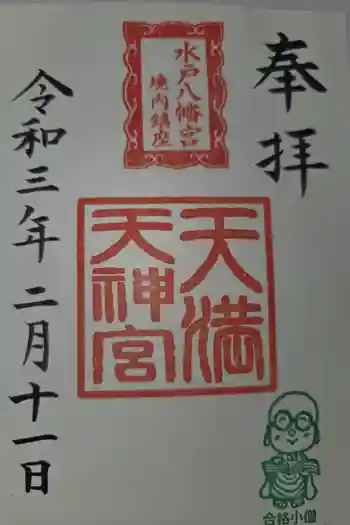 奉拝
水戸八幡宮
境内鎮座
天満
天神宮
令和三年二月十一日
合格小僧